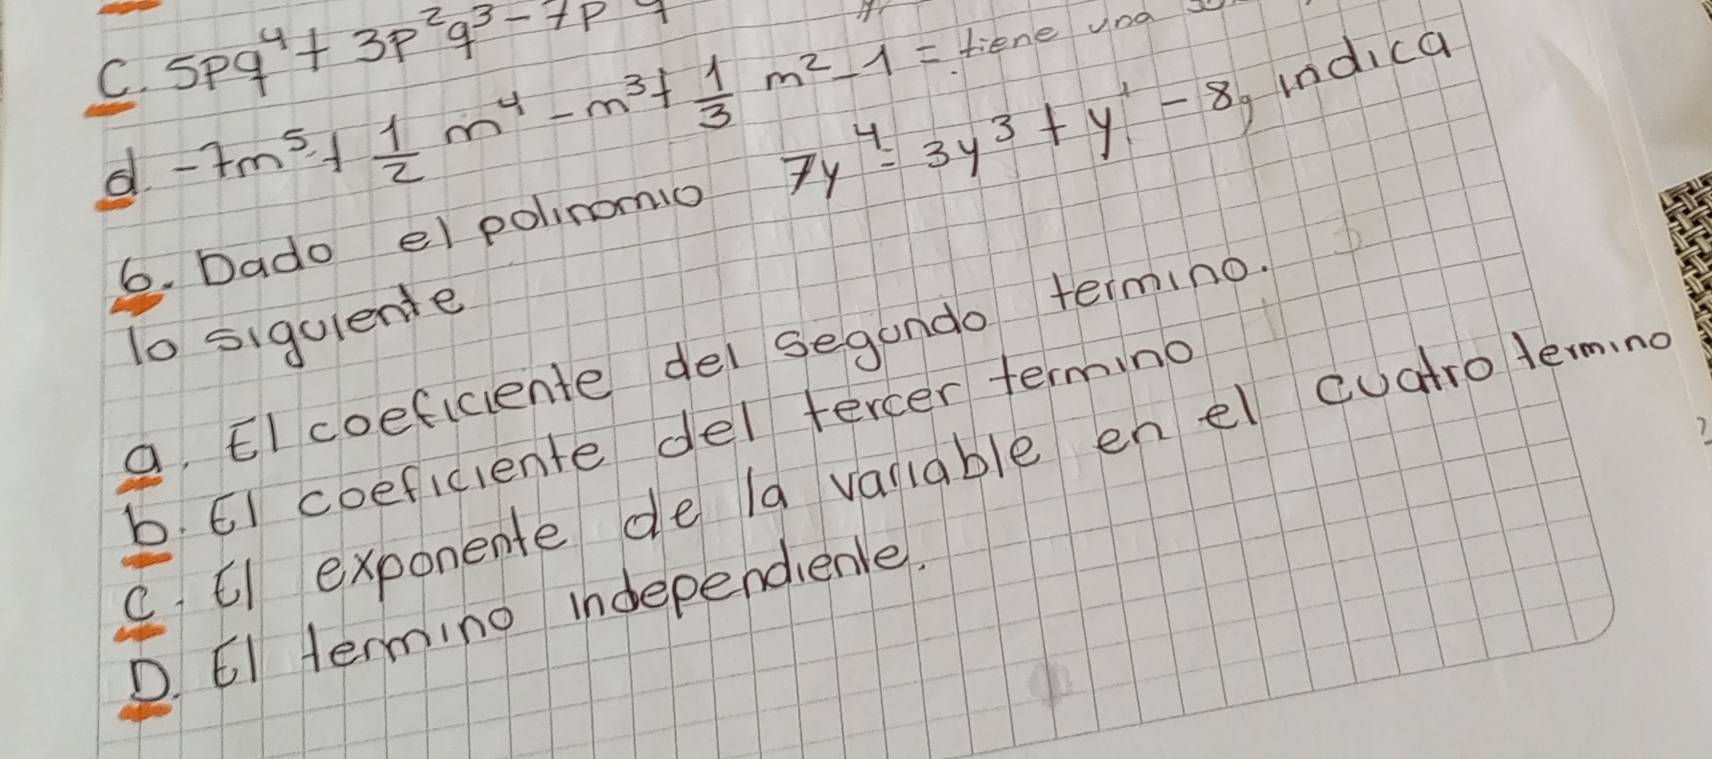 C. 5pq⁴ + 3p²q³ - 7p
d. -7m⁵ + 1/2 m⁴ - m³ + 1/3 m² - 1 = tiene una
6. Dado el polinomio 7y⁴ - 3y³ + y¹ - 8, indica
lo siguiente
a. El coeficiente del segundo termino.
b. El coeficiente del tercer termino
c. El exponente de la variable en el cuatro termino
D. El termino independiente.